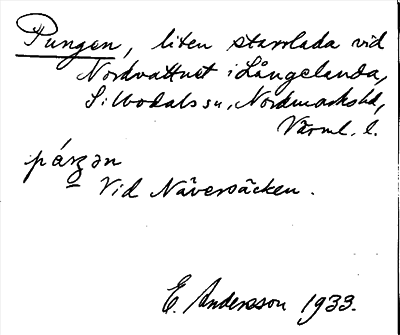 Pungen, liten starrlada vid
Nordvattnet i Långelanda,
Silbodals sn, Nordmarks hd,
Värml. l.
Vid Näversäcken.
E. Andersson 1933.